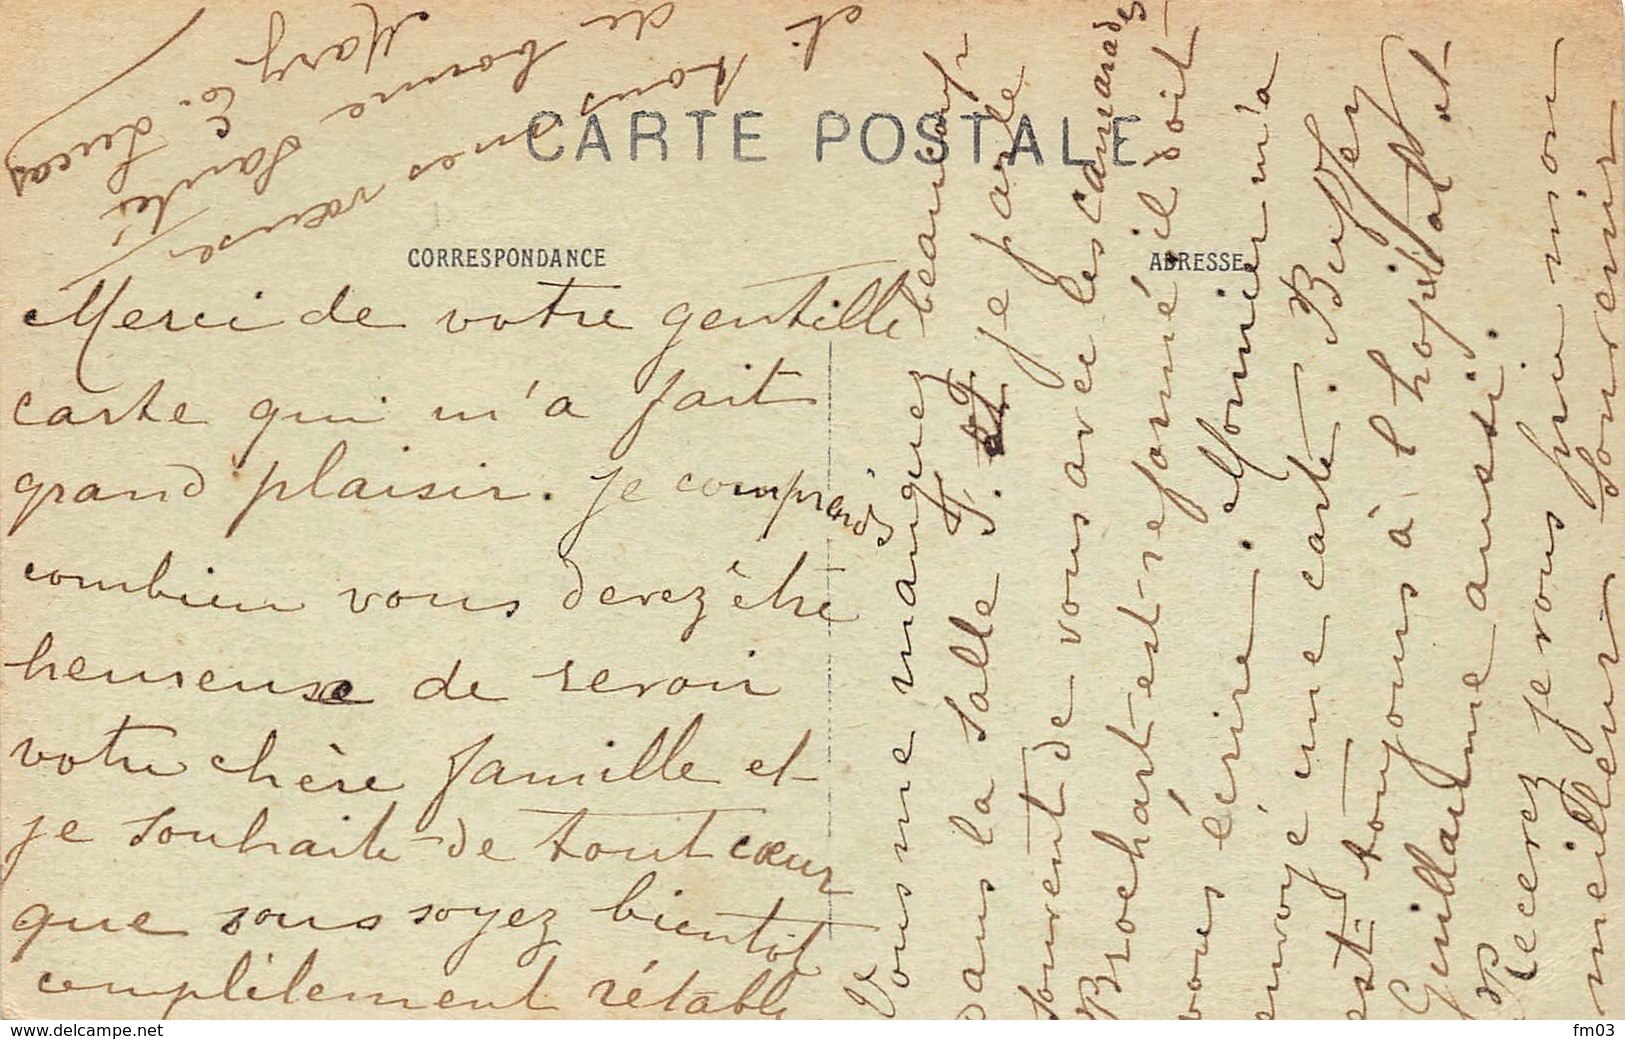 CARTE POSTALE
CORRESPONDANCE
ADRESSE
Merci de votre gentille
carte qui m'a fait
grand plaisir. Je comprends
combien vous devez être
heureuse de revoir
votre chère famille et
je souhaite de tout cœur
que vous soyez bientôt
complètement rétabli
Vous me manquez beaucoup
dans la salle F. et je parle
souvent de vous avec les camarades
Brochart est réformé il doit
vous écrire. Monnier m'a
envoyé une carte. Buffey
est toujours à l'hopital et
Guillaume aussi.
Recevez je vous prie mon
meilleur souvenir
et tous mes vœux
de bonne santé
Mary C. Lucas
www.delcampe.net
fm03